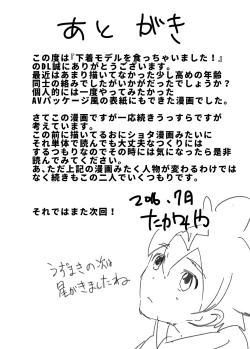 あとがき
この度は『下着モデルを食っちゃいました!』
のDL誠にありがとうございます。
最近はあまり描いてなかった少し高めの年齢
同士の絡みでしたがいかがだったでしょうか?
個人的には一度やってみたかった
AVパッケージ風の表紙にもできた漫画でした。
さてこの漫画ですが一応続きうっすらですが
考えています。
この前に描いてるおにショタ漫画みたいに
それ単体で読んでも大丈夫なつくりには
するつもりなのでその時には気になったら是非
読んでみてください。
あ、ただ上記の漫画みたく人物が変わるわけでは
なく続きもこの二人でいくつもりです。
それではまた次回!
2016.7月
たかみや
うずまきの次は
星がきましたね